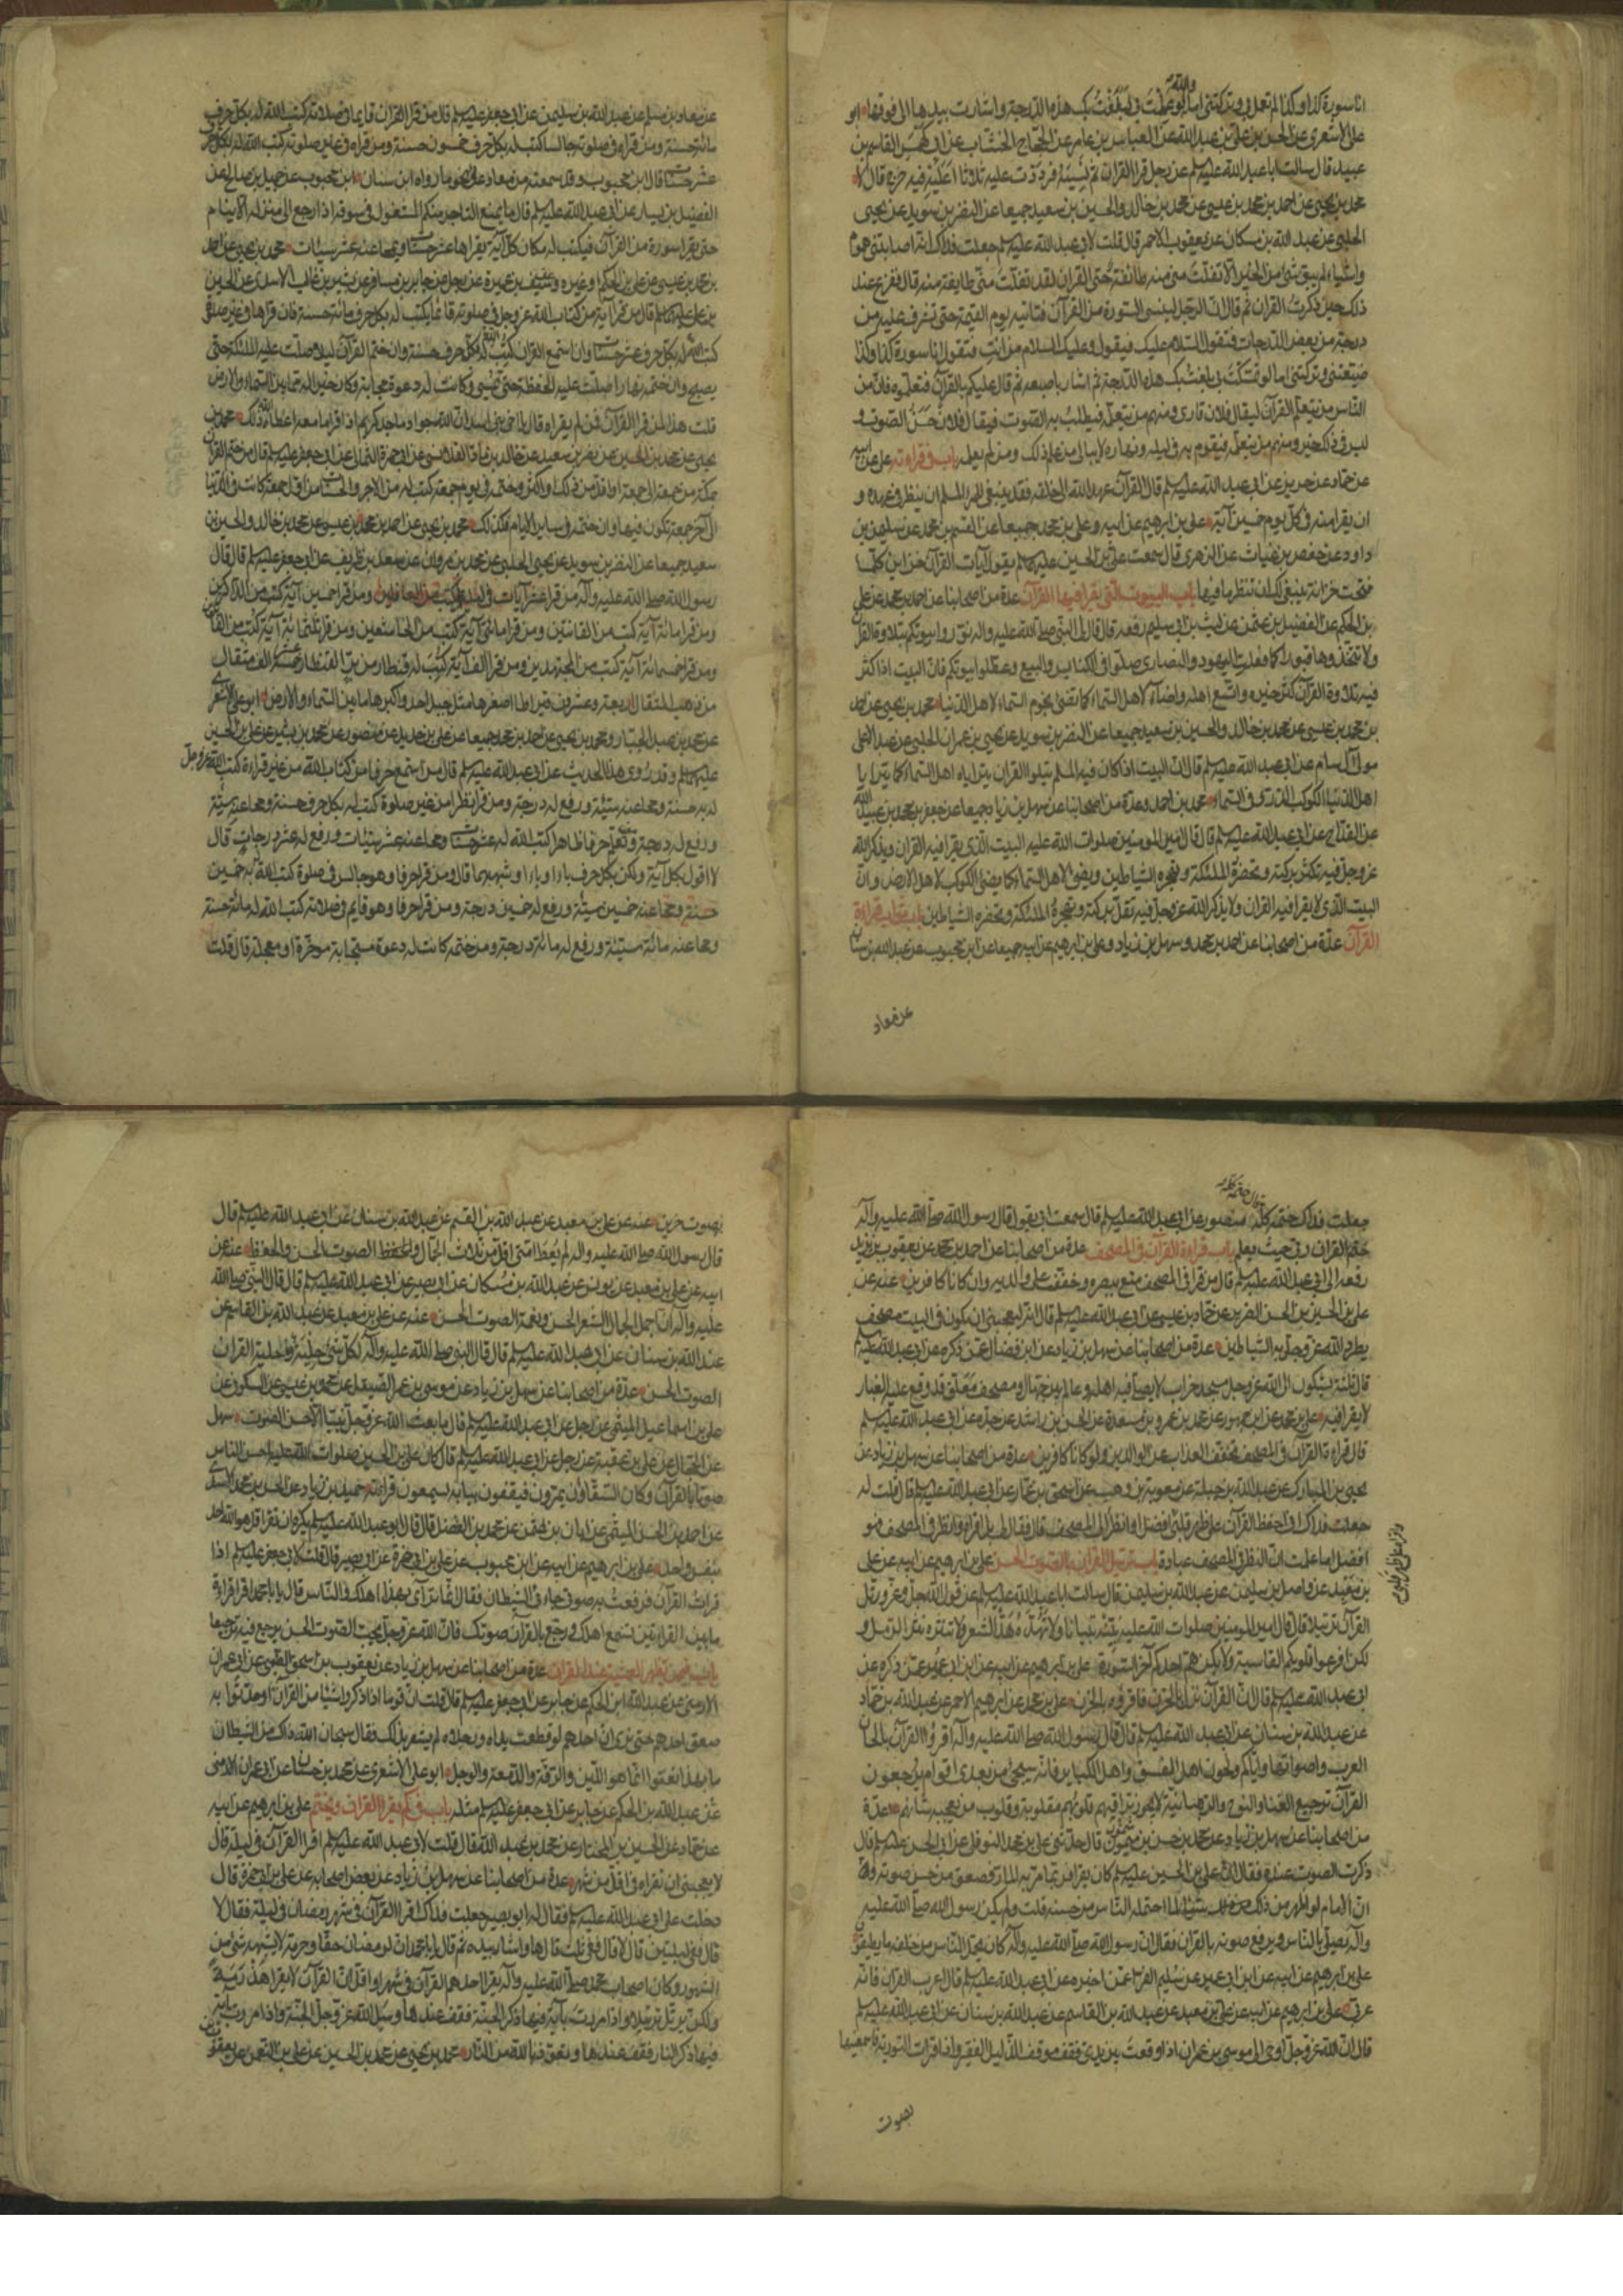 والله
انا سورة كذا وكذا لم تعمل بي وتركتني اما لو عملت بي لبلغت بك هذه الدرجة واشارت بيدها الى فوقها ابو
على الاشعرى عن الحسن بن على بن عبد الله عن العباس بن عامر عن الحجاج الخشاب عن ابى كهمس القاسم بن
عبيد قال سالت ابا عبد الله عليه السلم عن رجل قرا القرآن ثم نسيه فرددت عليه ثلاثا اعليه فيه حرج قال لا
محمد بن يحيى عن احمد بن محمد بن عيسى عن محمد بن خالد والحسين بن سعيد جميعا عن النضر بن سويد عن يحيى
الحلبي عن عبد الله بن مسكان عن يعقوب الاحمر قال قلت لابى عبد الله عليه السلم جعلت فداك انه اصابتنى هموم
واشياء لم يبق شئ من الخير الا تفلت منى منه طائفة حتى القران لقد تفلت منى طايفة منه قال ففزع عند
ذلك حين ذكرت القران ثم قال ان الرجل لينسى السورة من القرآن فتاتيه يوم القيمة حتى تشرف عليه من
درجة من بعض الدرجات فتقول السلام عليك فيقول وعليك السلام من انت فتقول انا سورة كذا وكذا
ضيعتنى وتركتنى اما لو تمسكت بى بلغت بك هذه الدرجة ثم اشار باصبعه ثم قال عليكم بالقرآن فتعلموه فان من
الناس من يتعلم القرآن ليقال فلان قارى ومنهم من يتعلمه فيطلب به الصوت فيقال فلان حسن الصوت و
ليس فى ذلك خير ومنهم من يتعلمه فيقوم به فى ليله ونهاره لا يبالى من علم ذلك ومن لم يعلمه باب فى قراءته على عن ابيه
عن حماد عن حريز عن ابى عبد الله عليه السلم قال القرآن عهد الله الى خلقه فقد ينبغى للمرء المسلم ان ينظر فى عهده و
ان يقرا منه فى كل يوم خمسين آية على بن ابرهيم عن ابيه وعلى بن محمد جميعا عن القسم بن محمد عن سليمن بن
داود عن حفص بن غياث عن الزهرى قال سمعت على بن الحسين عليهما السلم يقول آيات القرآن خزاين كلما
فتحت خزانة ينبغى لك ان تنظر ما فيها باب البيوت التى يقرا فيها القرآن عدة من اصحابنا عن احمد بن محمد عن على
بن الحكم عن الفضيل بن عثمن عن ليث بن ابى سليم رفعه قال قال النبى صلى الله عليه واله نوروا بيوتكم بتلاوة القرآن
ولا تتخذوها قبورا كما فعلت اليهود والنصارى صلوا فى الكنايس والبيع وعطلوا بيوتكم فان البيت اذا كثر
فيه تلاوة القرآن كثر خيره واتسع اهله واضاء لاهل السماء كما تضئ نجوم السماء لاهل الدنيا محمد بن يحيى عن احمد
بن محمد بن عيسى عن محمد بن خالد والحسين بن سعيد جميعا عن النضر بن سويد عن يحيى بن عمران الحلبى عن عبد الاعلى
مولى آل سام عن ابى عبد الله عليه السلم قال ان البيت اذا كان فيه المسلم يتلوا القران يتراياه اهل السماء كما يترايا
اهل الدنيا الكوكب الدرى فى السماء محمد بن احمد وعدة من اصحابنا عن سهل بن زياد جميعا عن جعفر بن محمد بن عبيد الله
عن القداح عن ابى عبد الله عليه السلم قال قال امير المومنين صلوات الله عليه البيت الذى يقرا فيه القران ويذكر الله
عز وجل فيه تكثر بركته وتحضره الملئكة وتهجره الشياطين ويضئ لاهل السماء كما يضئ الكوكب لاهل الارض وان
البيت الذى لا يقرا فيه القران ولا يذكر الله عز وجل فيه تقل بركته وتهجره الملئكة وتحضره الشياطين باب ثواب قراءة
القرآن عدة من اصحابنا عن احمد بن محمد وسهل بن زياد وعلى بن ابرهيم عن ابيه جميعا عن ابن محبوب عن عبد الله بن سنان
عن معاذ
عن معاذ بن مسلم عن عبد الله بن سليمن عن ابى جعفر عليه السلم قال من قرا القران قايما فى صلاته كتب الله له بكل حرف
مائة حسنة ومن قراه فى صلوته جالسا كتب له بكل حرف خمسون حسنة ومن قراه فى غير صلوته كتب الله له بكل حرف
عشر حسنات قال ابن محبوب وقد سمعته من معاذ على نحو ما رواه ابن سنان ابن محبوب عن جميل بن صالح عن
الفضيل بن يسار عن ابى عبد الله عليه السلم قال ما يمنع التاجر منكم المشغول فى سوقه اذا رجع الى منزله الا ينام
حتى يقرا سورة من القرآن فيكتب له مكان كل آية يقراها عشر حسنات ويمحا عنه عشر سيئات محمد بن يحيى عن احمد
بن محمد بن عيسى عن على بن الحكم او غيره عن سيف بن عميرة عن رجل عن جابر بن مسافر عن بشير بن غالب الاسدى عن الحسين
بن على عليهما السلم قال من قرا آية من كتاب الله عز وجل فى صلوته قائما يكتب له بكل حرف مائة حسنة فان قراها فى غير صلوة
كتب الله له بكل حرف عشر حسنات وان استمع القران كتب الله له بكل حرف حسنة وان ختم القرآن ليلا صلت عليه الملئكة حتى
يصبح وان ختمه نهارا صلت عليه الحفظة حتى يمسى وكانت له دعوة مجابة وكان خيرا له مما بين السماء والارض
قلت هذا لمن قرا القرآن فمن لم يقراه قال يا اخا بنى اسد ان الله جواد ماجد كريم اذا قرا ما معه اعطاه الله ذلك محمد بن
يحيى عن محمد بن الحسين عن نضر بن سعيد عن خالد بن ماد القلانسى عن ابى حمزة الثمالى عن ابى جعفر عليه السلم قال من ختم القرآن
بمكة من جمعة الى جمعة او اقل من ذلك او اكثر وختمه فى يوم جمعة كتب له من الاجر والحسنات من اول جمعة كانت فى الدنيا
الى آخر جمعة تكون فيها وان ختمه فى ساير الايام فكذلك محمد بن يحيى عن احمد بن محمد بن عيسى عن محمد بن خالد والحسين بن
سعيد جميعا عن النضر بن سويد عن يحيى الحلبى عن محمد بن مروان عن سعد بن طريف عن ابى جعفر عليه السلم قال قال
رسول الله صلى الله عليه وآله من قرا عشر آيات فى ليلة لم يكتب من الغافلين ومن قرا خمسين آية كتب من الذاكرين
ومن قرا مائة آية كتب من القانتين ومن قرا مائتى آية كتب من الخاشعين ومن قرا ثلثمائة آية كتب من الفائزين
ومن قرا خمسمائة آية كتب من المجتهدين ومن قرا الف آية كتب له قنطار من بر القنطار خمسة عشر الف مثقال
من ذهب المثقال اربعة وعشرون قيراطا اصغرها مثل جبل احد واكبرها ما بين السماء والارض ابو على الاشعرى
عن محمد بن عبد الجبار ومحمد بن يحيى عن احمد بن محمد جميعا عن على بن حديد عن منصور عن محمد بن بشير عن على بن الحسين
عليهما السلم وقد روى هذا الحديث عن ابى عبد الله عليه السلم قال من استمع حرفا من كتاب الله من غير قراءة كتب الله عز وجل
له به حسنة ومحا عنه سيئة ورفع له درجة ومن قرا نظرا من غير صلوة كتب له بكل حرف حسنة ومحا عنه سيئة
ورفع له درجة ومن تعلم حرفا ظاهرا كتب الله له عشر حسنات ومحا عنه عشر سيئات ورفع له عشر درجات قال
لا اقول بكل آية ولكن بكل حرف باء او ياء او شبههما قال ومن قرا حرفا وهو جالس فى صلوة كتب الله له به خمسين
حسنة ومحا عنه خمسين سيئة ورفع له خمسين درجة ومن قرا حرفا وهو قايم فى صلاته كتب الله له مائة حسنة
ومحا عنه مائة سيئة ورفع له مائة درجة ومن ختمه كانت له دعوة مستجابة موخرة او معجلة قال قلت
قال ختمه كله
جعلت فداك ختمه كله منصور عن ابى عبد الله عليه السلم قال سمعت ابى يقول قال رسول الله صلى الله عليه وآله
ختم القران الى حيث يعلم باب قراءة القرآن فى المصحف عدة من اصحابنا عن احمد بن محمد عن يعقوب بن يزيد
رفعه الى ابى عبد الله عليه السلم قال من قرا فى المصحف متع ببصره وخفف على والديه وان كانا كافرين عنه عن
على بن الحسين بن الحسن الضرير عن حماد بن عيسى عن ابى عبد الله عليه السلم قال انه ليعجبنى ان يكون فى البيت مصحف
يطرد الله عز وجل به الشياطين عدة من اصحابنا عن سهل بن زياد عن ابن فضال عمن ذكره عن ابى عبد الله عليه السلم
قال ثلثة يشكون الى الله عز وجل مسجد خراب لا يصلى فيه اهله وعالم بين جهال ومصحف معلق قد وقع عليه الغبار
لا يقرا فيه على بن محمد عن ابن جمهور عن محمد بن عمرو بن مسعدة عن الحسن بن راشد عن جده عن ابى عبد الله عليه السلم
قال قراءة القران فى المصحف تخفف العذاب عن الوالدين ولو كانا كافرين عدة من اصحابنا عن سهل بن زياد عن
يحيى بن المبارك عن عبد الله بن جبلة عن معوية بن وهب عن اسحق بن عمار عن ابى عبد الله عليه السلم قال قلت له
جعلت فداك انى احفظ القرآن على ظهر قلبى افضل او انظر فى المصحف قال فقال لى بل اقراه وانظر فى المصحف فهو
افضل اما علمت ان النظر فى المصحف عبادة باب ترتيل القران بالصوت الحسن على بن ابرهيم عن ابيه عن على
بن معبد عن واصل بن سليمن عن عبد الله بن سليمن قال سالت ابا عبد الله عليه السلم عن قول الله جل وعز ورتل
القرآن ترتيلا قال قال امير المومنين صلوات الله عليه بينه تبيانا ولا تهذه هذ الشعر ولا تنثره نثر الرمل و
لكن افزعوا قلوبكم القاسية ولا يكن هم احدكم آخر السورة على بن ابرهيم عن ابيه عن ابن ابى عمير عمن ذكره عن
ابى عبد الله عليه السلم قال ان القرآن نزل بالحزن فاقرؤه بالحزن على بن محمد عن ابرهيم الاحمر عن عبد الله بن حماد
عن عبد الله بن سنان عن ابى عبد الله عليه السلم قال قال رسول الله صلى الله عليه وآله اقرؤا القرآن بالحان
العرب واصواتها واياكم ولحون اهل الفسق واهل الكباير فانه سيجئ من بعدى اقوام يرجعون
القرآن ترجيع الغناء والنوح والرهبانية لا يجوز تراقيهم قلوبهم مقلوبة وقلوب من يعجبه شانهم عدة
من اصحابنا عن سهل بن زياد عن محمد بن حسن بن شمون قال حدثنى على بن محمد النوفلى عن ابى الحسن عليه السلم قال
ذكرت الصوت عنده فقال ان على بن الحسين عليه السلم كان يقرا فربما مر به المار فصعق من حسن صوته وان
ان الامام لو اظهر من ذلك شيئا لما احتمله الناس من حسنه قلت ولم يكن رسول الله صلى الله عليه
وآله يصلى بالناس ويرفع صوته بالقران فقال ان رسول الله صلى الله عليه وآله كان يحمل الناس من خلفه ما يطيقون
على بن ابرهيم عن ابيه عن ابن ابى عمير عن سليم الفرا عمن اخبره عن ابى عبد الله عليه السلم قال اعرب القران فانه
عربى على بن ابرهيم عن ابيه عن على بن معبد عن عبد الله بن القاسم عن عبد الله بن سنان عن ابى عبد الله عليه السلم
قال ان الله عز وجل اوحى الى موسى بن عمران اذا وقفت بين يدى فقف موقف الذليل الفقير واذا قرات التورية فاسمعنيها
بصوت
بصوت حزين عنه عن على بن معبد عن عبد الله بن القسم عن عبد الله بن سنان عن ابى عبد الله عليه السلم قال
قال رسول الله صلى الله عليه واله لم يعط امتى اقل من ثلاث الجمال والصوت الحسن والحفظ عنه عن
ابيه عن على بن معبد عن يونس عن عبد الله بن مسكان عن ابى بصير عن ابى عبد الله عليه السلم قال قال النبى صلى الله
عليه وآله ان اجمل الجمال الشعر الحسن ونغمة الصوت الحسن عنه عن على بن معبد عن عبد الله بن القاسم عن
عبد الله بن سنان عن ابى عبد الله عليه السلم قال قال النبى صلى الله عليه وآله لكل شئ حلية وحلية القران
الصوت الحسن عدة من اصحابنا عن سهل بن زياد عن موسى بن عمر الصيقل عن محمد بن عيسى عن السكونى عن
على بن اسماعيل الميثمى عن رجل عن ابى عبد الله عليه السلم قال ما بعث الله عز وجل نبيا الا حسن الصوت سهل
عن الحجال عن على بن عقبة عن رجل عن ابى عبد الله عليه السلم قال كان على بن الحسين صلوات الله عليه احسن الناس
صوتا بالقرآن وكان السقاؤن يمرون فيقفون ببابه يسمعون قراءته حميد بن زياد عن الحسن بن محمد الاسدى
عن احمد بن الحسن الميثمى عن ابان بن عثمن عن محمد بن الفضيل قال قال ابو عبد الله عليه السلم يكره ان تقرا قل هو الله احد
بنفس واحد على بن ابرهيم عن ابيه عن ابن محبوب عن على بن ابى حمزة عن ابى بصير قال قلت لابى جعفر عليه السلم اذا
قرات القرآن فرفعت به صوتى جاءنى الشيطان فقال انما ترآى بهذا اهلك والناس قال يا با محمد اقرا قراءة
ما بين القراءتين تسمع اهلك ورجع بالقرآن صوتك فان الله عز وجل يحب الصوت الحسن يرجع فيه ترجيعا
باب فيمن يظهر الغشية عند القران عدة من اصحابنا عن سهل بن زياد عن يعقوب بن اسحق الضبى عن ابى عمران
الارمنى عن عبد الله بن الحكم عن جابر عن ابى جعفر عليه السلم قال قلت ان قوما اذا ذكروا شيئا من القران او حدثوا به
صعق احدهم حتى يرى ان احدهم لو قطعت يداه ورجلاه لم يشعر بذلك فقال سبحان الله ذاك من الشيطان
ما بهذا نعتوا انما هو اللين والرقة والدمعة والوجل ابو على الاشعرى عن محمد بن حسان عن ابى عمران الارمنى
عن عبد الله بن الحكم عن جابر عن ابى جعفر عليه السلم مثله باب فى كم يقرا القران ويختم على بن ابرهيم عن ابيه
عن حماد عن الحسين بن المختار عن محمد بن عبد الله قال قلت لابى عبد الله عليه السلم اقرا القرآن فى ليلة قال
لا يعجبنى ان تقراه فى اقل من شهر عدة من اصحابنا عن سهل بن زياد عن بعض اصحابه عن على بن ابى حمزة قال
دخلت على ابى عبد الله عليه السلم فقال له ابو بصير جعلت فداك اقرا القرآن فى شهر رمضان فى ليلة فقال لا
قال ففى ليلتين قال لا قال ففى ثلث قال ها واشار بيده ثم قال يا با محمد ان لرمضان حقا وحرمة لا يشبهه شئ من
الشهور وكان اصحاب محمد صلى الله عليه وآله يقرا احدهم القرآن فى شهر او اقل ان القرآن لا يقرا هذرمة
ولكن يرتل ترتيلا واذا مررت بآية فيها ذكر الجنة فقف عندها وسئل الله عز وجل الجنة واذا مررت بآية
فيها ذكر النار فقف عندها وتعوذ بالله من النار محمد بن يحيى عن محمد بن الحسين عن على بن النعمن عن يعقوب